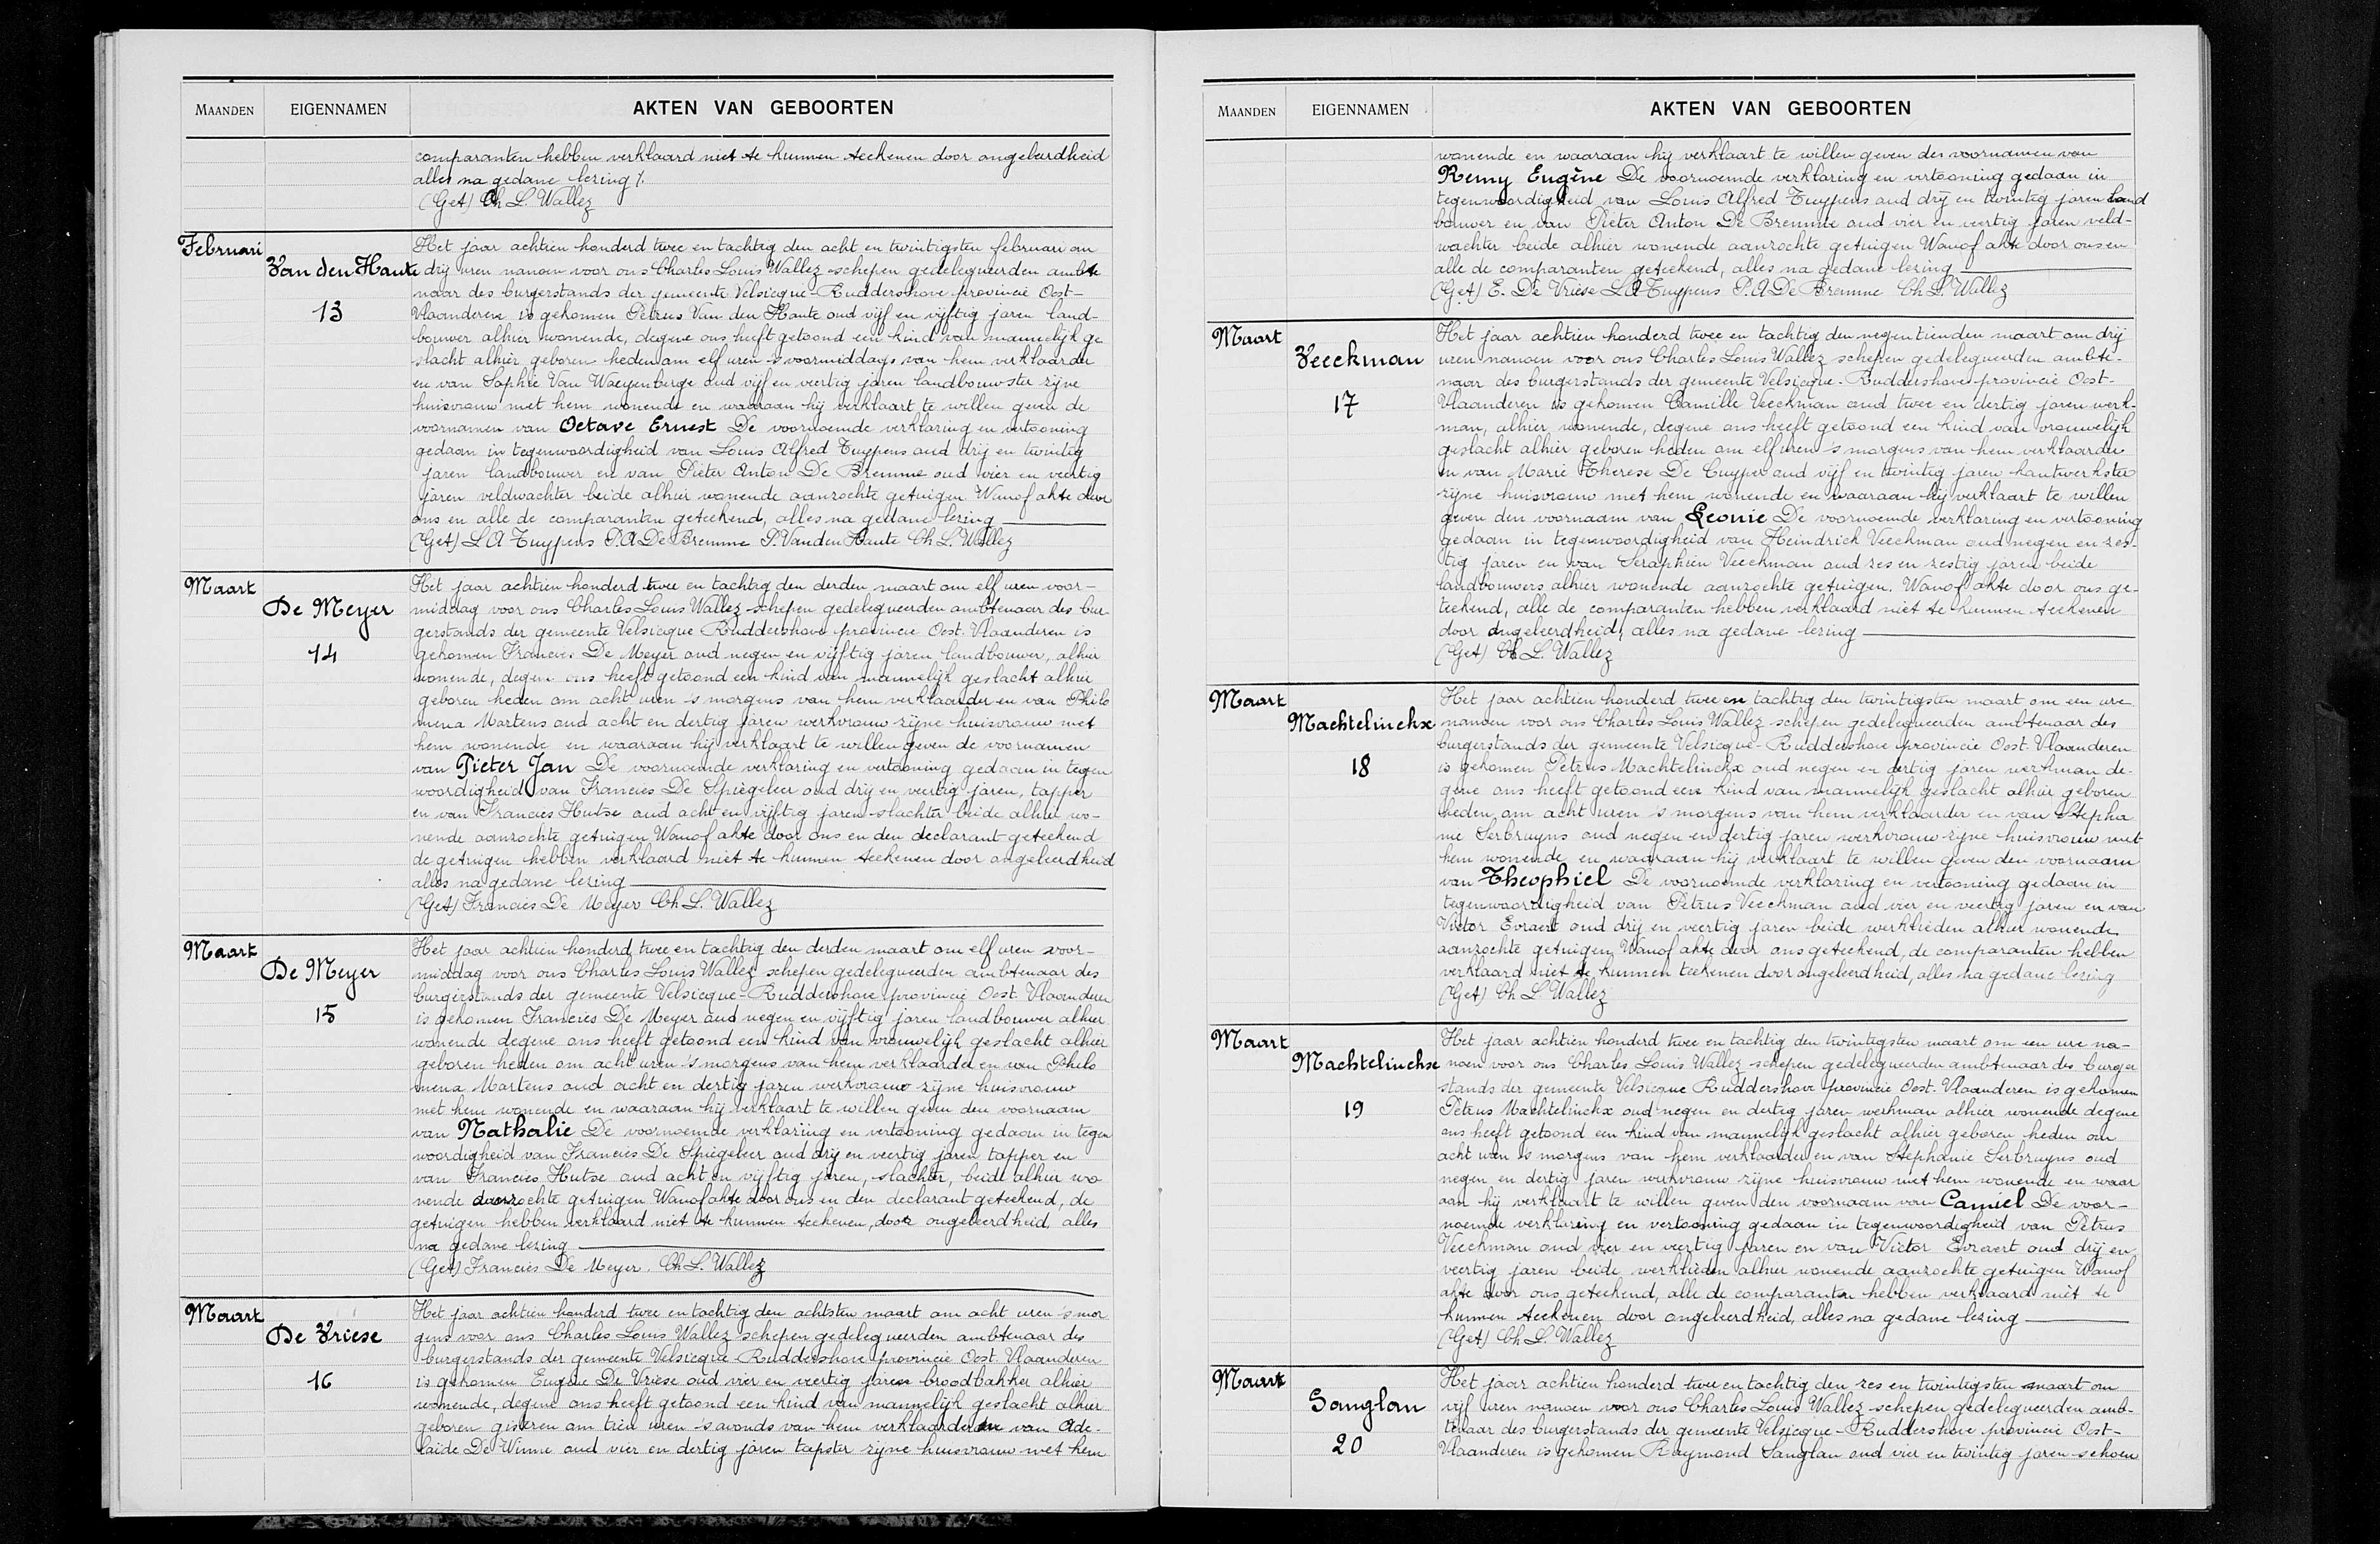 MAANDEN EIGENNAMEN AKTEN VAN GEBOORTEN
comparanten hebben verklaard niet te kunnen teekenen door ongeleerdheid
alles na gedane lezing %.
(Get) Ch L. Wallez
Februari
Van den Haute
13
Het jaar achtien honderd twee en tachtig den acht en twintigsten februari om
drij uren namoen voor ons Charles Louis Wallez schepen gedelegueerden ambte
naar des burgerstands der gemeente Velsicque-Ruddershove provincie Oost-
Vlaanderen is gekomen Petrus Van den Haute oud vijf en vijftig jaren land-
bouwer alhier wonende, degene ons heeft getoond een kind van mannelijk ge
slacht alhier geboren heden om elf uren 's voormiddags van hem verklaarder
en van Sophie Van Waeyenberge oud vijf en veertig jaren landbouwster zijne
huisvrouw met hem wonende en waaraan hij verklaart te willen geven de
voornamen van Octave Ernest De voornoemde verklaring en vertooning
gedaan in tegenwoordigheid van Louis Alfred Tuypens oud drij en twintig
jaren landbouwer en van Pieter Anton De Bremme oud vier en veertig
jaren veldwachter beide alhier wonende aanzochte getuigen Wanof akte door
ons en alle de comparanten geteekend, alles na gedane lezing
(Get) L A Tuypens P. A De Bremme P. Vanden Haute Ch L. Wallez
Maart
De Meyer
14
Het jaar achtien honderd twee en tachtig den derden maart om elf uren voor-
middag voor ons Charles Louis Wallez schepen gedelegueerden ambtenaar des bur-
gerstands der gemeente Velsicque Ruddershove provincie Oost. Vlaanderen is
gekomen Francies De Meyer oud negen en vijftig jaren landbouwer, alhier
wonende, degen ons heeft getoond een kind van mannelijk geslacht alhier
geboren heden om acht uren 's morgens van hem verklaarder en van Philo
mena Martens oud acht en dertig jaren werkvrouw zijne huisvrouw met
hem wonende en waaraan hij verklaart te willen geven de voornamen
van Pieter Jan De voornoemde verklaring en vertooning gedaan in tegen
woordigheid van Francies De Spiegeleer oud drij en veertig jaren, tapper
en van Francies Hutse oud acht en vijftig jaren slachter beide alhier wo-
nende aanzochte getuigen Wanof akte door ons en den declarant geteekend
de getuigen hebben verklaard niet te kunnen teekenen door ongeleerdheid
alles na gedane lezing
(Get) Francies De Meyer Ch L. Wallez
Maart
De Meyer
15
Het jaar achtien honderd twee en tachtig den derden maart om elf uren voor-
middag voor ons Charles Louis Wallez schepen gedelegueerden ambtenaar des
burgerstands der gemeente Velsicque-Ruddershove provincie Oost. Vlaanderen
is gekomen Francies De Meyer oud negen en vijftig jaren landbouwer alhier
wonende degene ons heeft getoond een kind van vrouwelijk geslacht alhier
geboren heden om acht uren 's morgens van hem verklaarder en van Philo
mena Martens oud acht en dertig jaren werkvrouw zijne huisvrouw
met hem wonende en waaraan hij verklaart te willen geven den voornaam
van Nathalie De voornoemde verklaring en vertooning gedaan in tegen
woordigheid van Francies De Spiegeleer oud drij en veertig jaren tapper en
van Francies Hutse oud acht en vijftig jaren, slachter, beide alhier wo
nende aanzochte getuigen Wanof akte door ons en den declarant geteekend, de
getuigen hebben verklaard niet te kunnen teekenen, door ongeleerdheid alles
na gedane lezing
(Get) Francies De Meyer. Ch L. Wallez
Maart
De Vriese
16
Het jaar achtien honderd twee en tachtig den achtsten maart om acht uren 's mor
gens voor ons Charles Louis Wallez schepen gedelegueerden ambtenaar des
burgerstands der gemeente Velsicque Ruddershove provincie Oost Vlaanderen
is gekomen Eugène De Vriese oud vier en veertig jaren broodbakker alhier
wonende, degene ons heeft getoond een kind van mannelijk geslacht alhier
geboren gisteren om tien uren 's avonds van hem verklaarder en van Ade-
laide De Winne oud vier en dertig jaren tapster zijne huisvrouw met hem
MAANDEN EIGENNAMEN AKTEN VAN GEBOORTEN
wonende en waaraan hij verklaart te willen geven des voornamen van
Remy Eugène De voornoemde verklaring en vertooning gedaan in
tegenwoordigheid van Louis Alfred Tuypens oud drij en twintig jaren land
bouwer en van Pieter Anton De Bremme oud vier en veertig jaren veld-
wachter beide alhier wonende aanzochte getuigen Wanof akte door ons en
alle de comparanten geteekend, alles na gedane lezing
(Get) E. De Vriese L A Tuypens P. A De Bremme Ch L. Wallez
Maart
Veeckman
17
Het jaar achtien honderd twee en tachtig den negentienden maart om drij
uren namoen voor ons Charles Louis Wallez schepen gedelegueerden ambte-
naar des burgerstands der gemeente Velsicque-Ruddershove provincie Oost-
Vlaanderen is gekomen Camille Veeckman oud twee en dertig jaren werk-
man, alhier wonende, degene ons heeft getoond een kind van vrouwelijk
geslacht alhier geboren heden om elf uren 's morgens van hem verklaarder
en van Marie Therese De Cuyper oud vijf en twintig jaren kantwerkster
zijne huisvrouw met hem wonende en waaraan hij verklaart te willen
geven den voornaam van Leonie De voornoemde verklaring en vertooning
gedaan in tegenwoordigheid van Heindrick Veeckman oud negen en zes-
tig jaren en van Seraphien Veeckman oud zes en zestig jaren beide
landbouwers alhier wonende aanzochte getuigen. Wanof akte door ons ge-
teekend, alle de comparanten hebben verklaard niet te kunnen teekenen
door ongeleerdheid, alles na gedane lezing
(Get) Ch L. Wallez
Maart
Machtelinckx
18
Het jaar achtien honderd twee en tachtig den twintigsten maart om een ure
namoen voor ons Charles Louis Wallez schepen gedelegueerden ambtenaar des
burgerstands der gemeente Velsicque-Ruddershove provincie Oost. Vlaanderen
is gekomen Petrus Machtelinckx oud negen en dertig jaren werkman de-
gene ons heeft getoond een kind van mannelijk geslacht alhier geboren
heden om acht uren 's morgens van hem verklaarder en van Stepha
nie Serbruyns oud negen en dertig jaren werkvrouw zijne huisvrouw met
hem wonende en waaraan hij verklaart te willen geven den voornaam
van Theophiel De voornoemde verklaring en vertooning gedaan in
tegenwoordigheid van Petrus Veeckman oud vier en veertig jaren en van
Victor Evraert oud drij en veertig jaren beide werklieden alhier wonende
aanzochte getuigen Wanof akte door ons geteekend, de comparanten hebben
verklaard niet te kunnen teekenen door ongeleerdheid, alles na gedane lezing
(Get) Ch L. Wallez
Maart
Machtelinckx
19
Het jaar achtien honderd twee en tachtig den twintigsten maart om een ure na-
noen voor ons Charles Louis Wallez schepen gedelegueerden ambtenaar des burger
stands der gemeente Velsicque Ruddershove provincie Oost-Vlaanderen is gekomen
Petrus Machtelinckx oud negen en dertig jaren werkman alhier wonende degene
ons heeft getoond een kind van mannelijk geslacht alhier geboren heden om
acht uren 's morgens van hem verklaarder en van Stephanie Serbruyns oud
negen en dertig jaren werkvrouw zijne huisvrouw met hem wonende en waar
aan hij verklaart te willen geven den voornaam van Camiel De voor-
noemde verklaring en vertooning gedaan in tegenwoordigheid van Petrus
Veeckman oud vier en veertig jaren en van Victor Evraert oud drij en
veertig jaren beide werklieden alhier wonende aanzochte getuigen Wanof
akte door ons geteekend, alle de comparanten hebben verklaard niet te
kunnen teekenen door ongeleerdheid, alles na gedane lezing
(Get) Ch L. Wallez
Maart
Sanglan
20
Het jaar achtien honderd twee en tachtig den zes en twintigsten maart om
vijf uren namoen voor ons Charles Louis Wallez schepen gedelegueerden amb-
tenaar des burgerstands der gemeente Velsicque-Ruddershove provincie Oost-
Vlaanderen is gekomen Raymond Sanglan oud vier en twintig jaren schoen